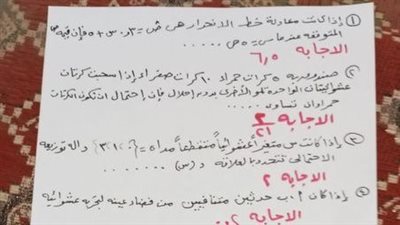 ① إذا كانت معادلة خط الانحدار هى ص̂ = ٣و. س + ٥ فإن قيمة ص
المتوقعة عندما س = ٥ هى .....
الاجابه ٦٫٥
② صندوق به ٥ كرات حمراء ١٠ كرات صفراء إذا سحبت كرتان
عشوائيتان الواحدة تلو الأخرى بدون إحلال فإن احتمال أن تكون الكرتان
حمراوان تساوى .....
الاجابة ٢/٢١
③ إذا كانت س متغيراً عشوائياً متقطعاً مداه = {٣،١،٢} دالة توزيعه
الاحتمالى تتحدد بالعلاقة د (س) .....
الاجابه ٢
④ إذا كان ٢، ب حدثين متنافيين من فضاء عينة لتجربة عشوائية
الاجابه